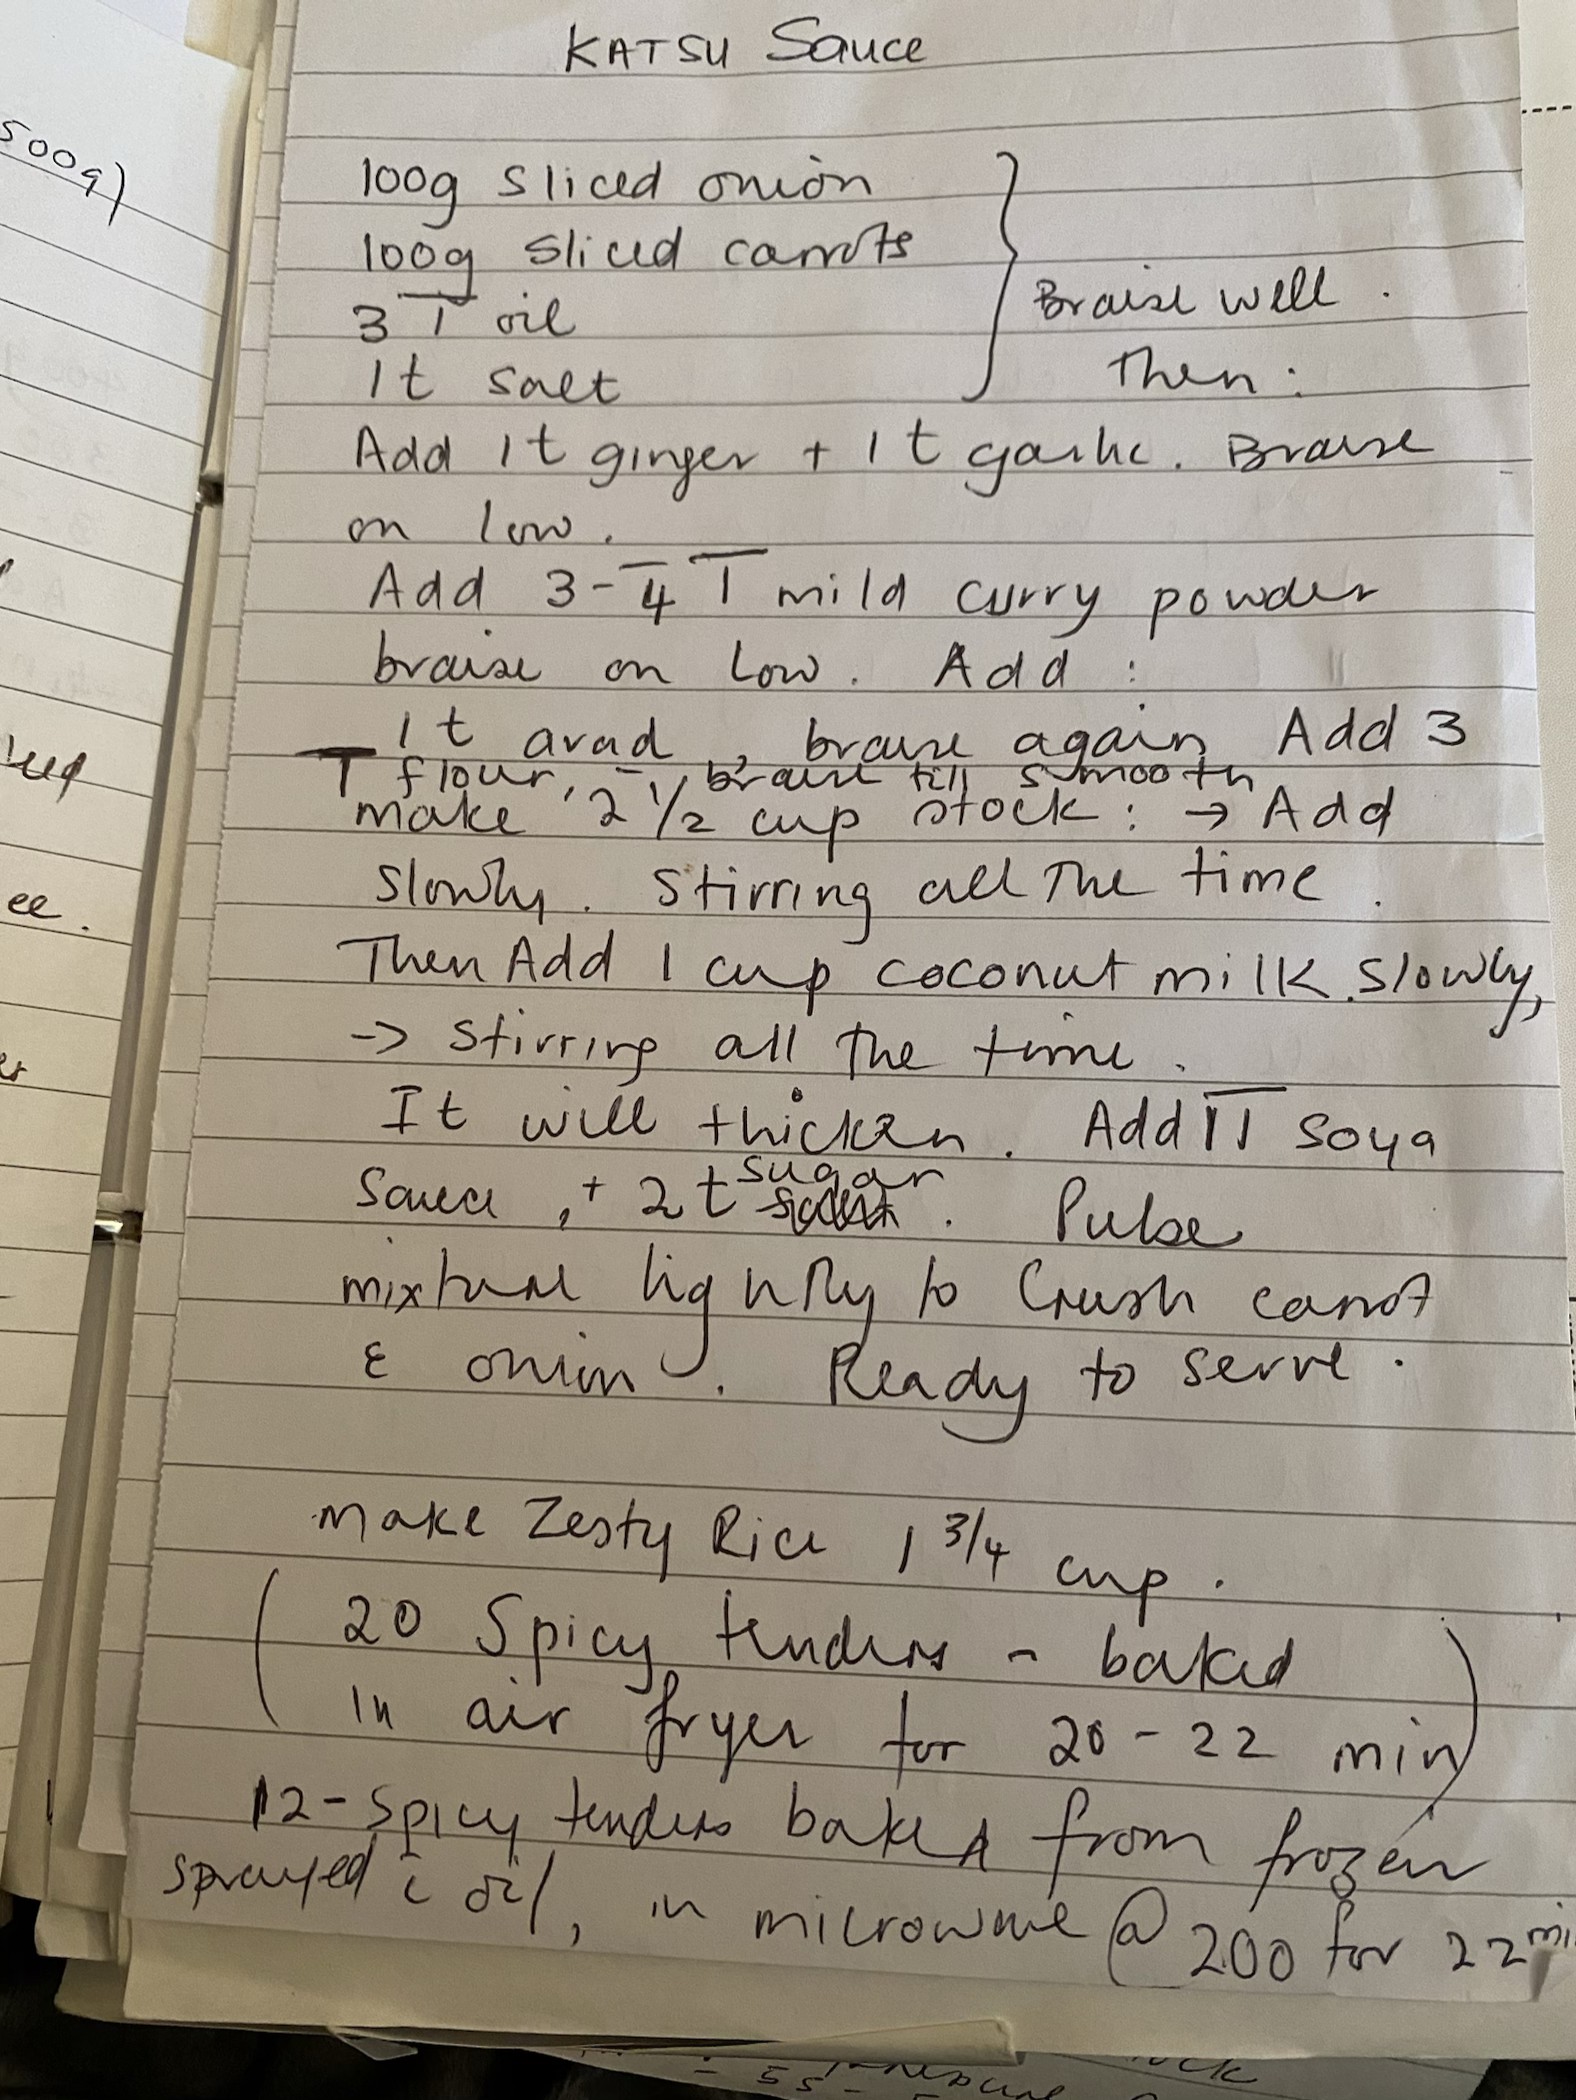 KATSU Sauce
500g)
100g sliced onion
100g sliced carrots
3 T oil
1t salt
Braise well.
Then:
Add 1t ginger + 1t garlic. Braise
on low.
Add 3-4 T mild curry powder
braise on low. Add:
1t arad, braise again Add 3
T flour, braise till smooth
make 2 1/2 cup stock: → Add
slowly. Stirring all The time.
Then Add 1 cup coconut milk slowly,
-> stirring all the time.
It will thicken. Add 1T soya
Sauce, + 2t sugar. Pulse
mixture lightly to Crush carrot
& onion. Ready to serve.
Make Zesty Rice 1 3/4 cup.
(20 Spicy tenders - baked
in air fryer for 20-22 min)
12-spicy tenders baked from frozen
sprayed c oil, in microwave @ 200 for 22 min